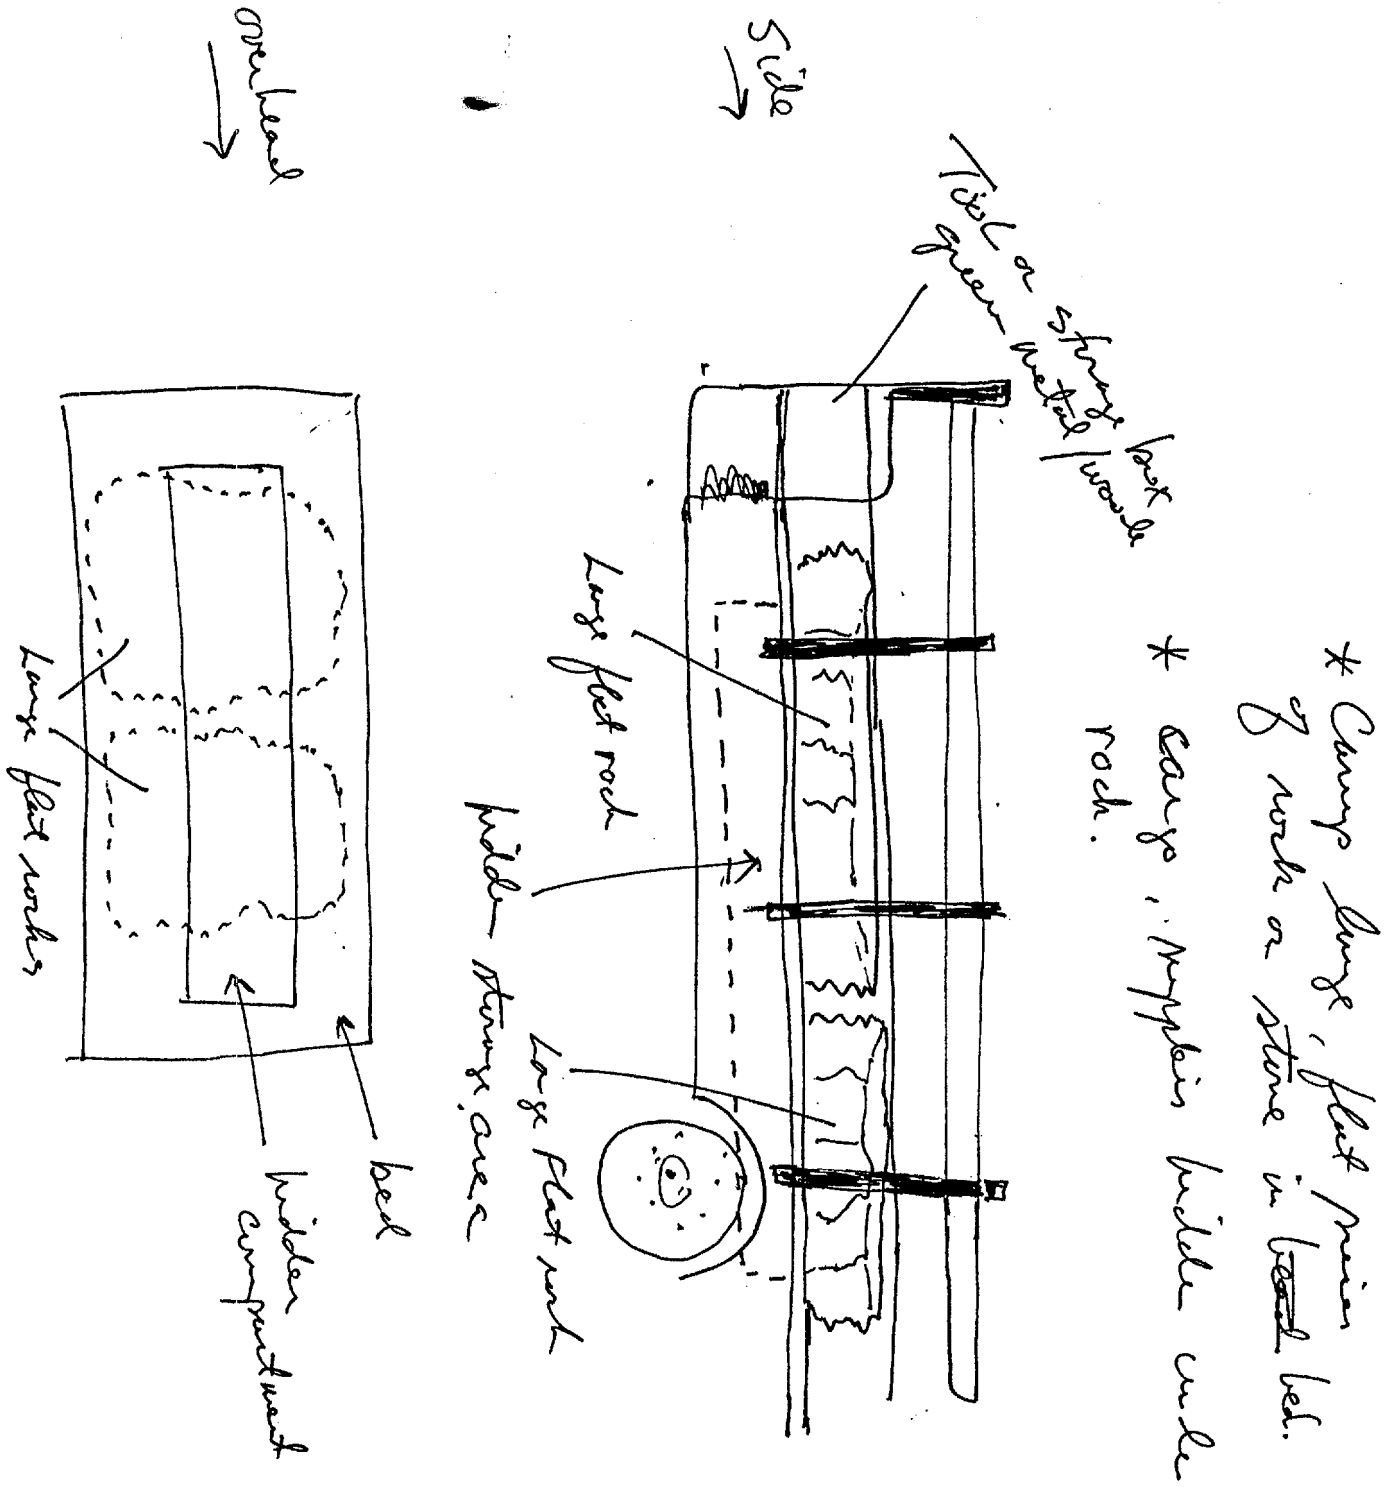 * Carry large, flat pieces
of rock or stone in bed.
* cargo, supplies hidden under
rock.
Tool or storage box
green metal/wood
Side
Large flat rock
hidden storage area
Large Flat rock
overhead
bed
hidden
compartment
Large flat rocks